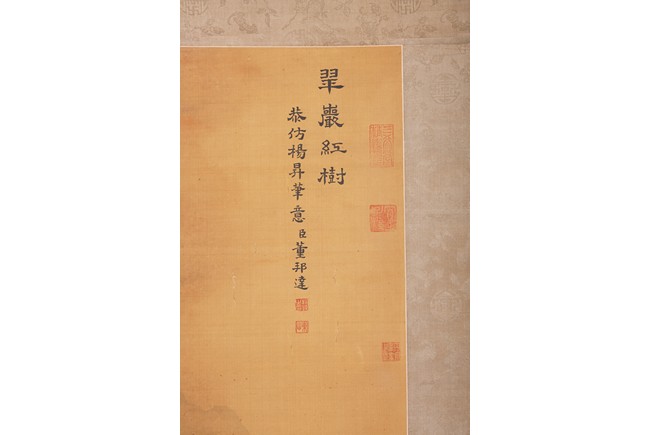 翠巖紅樹
恭仿楊昇筆意臣董邦達